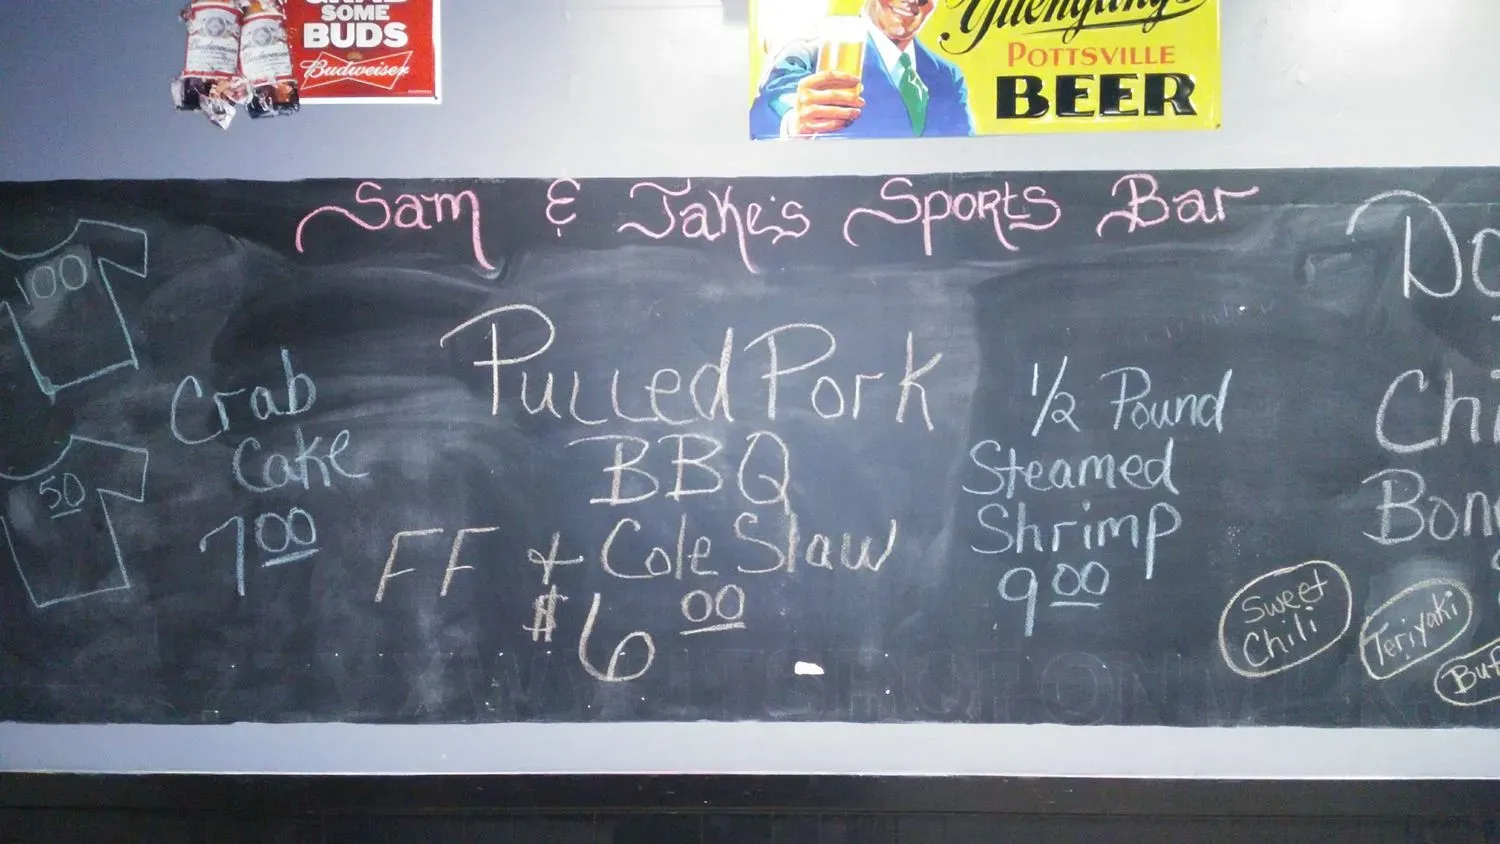 SOME
BUDS
Budweiser
Budweiser
Budweiser
Yuengling's
POTTSVILLE
BEER
Sam & Jake's Sports Bar
100
50
Crab
Cake
7.00
Pulled Pork
BBQ
FF + Cole Slaw
$6.00
1/2 Pound
Steamed
Shrimp
9.00
Do
Chi
Bon
Sweet
Chili
Teriyaki
Buf